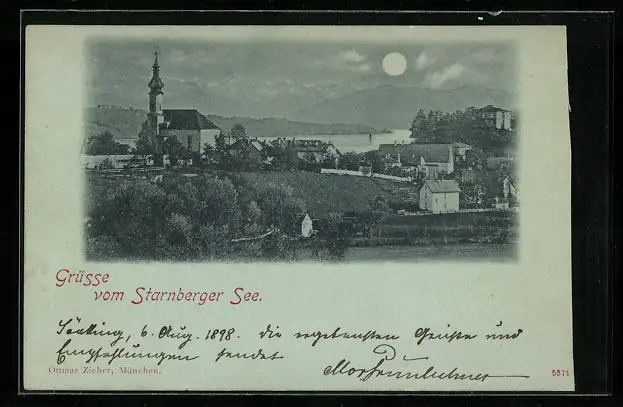 Grüsse
vom Starnberger See.
6. Aug. 1898. die ergebensten Grüße und
Empfehlungen sendet
Ottmar Zieher, München.
5571